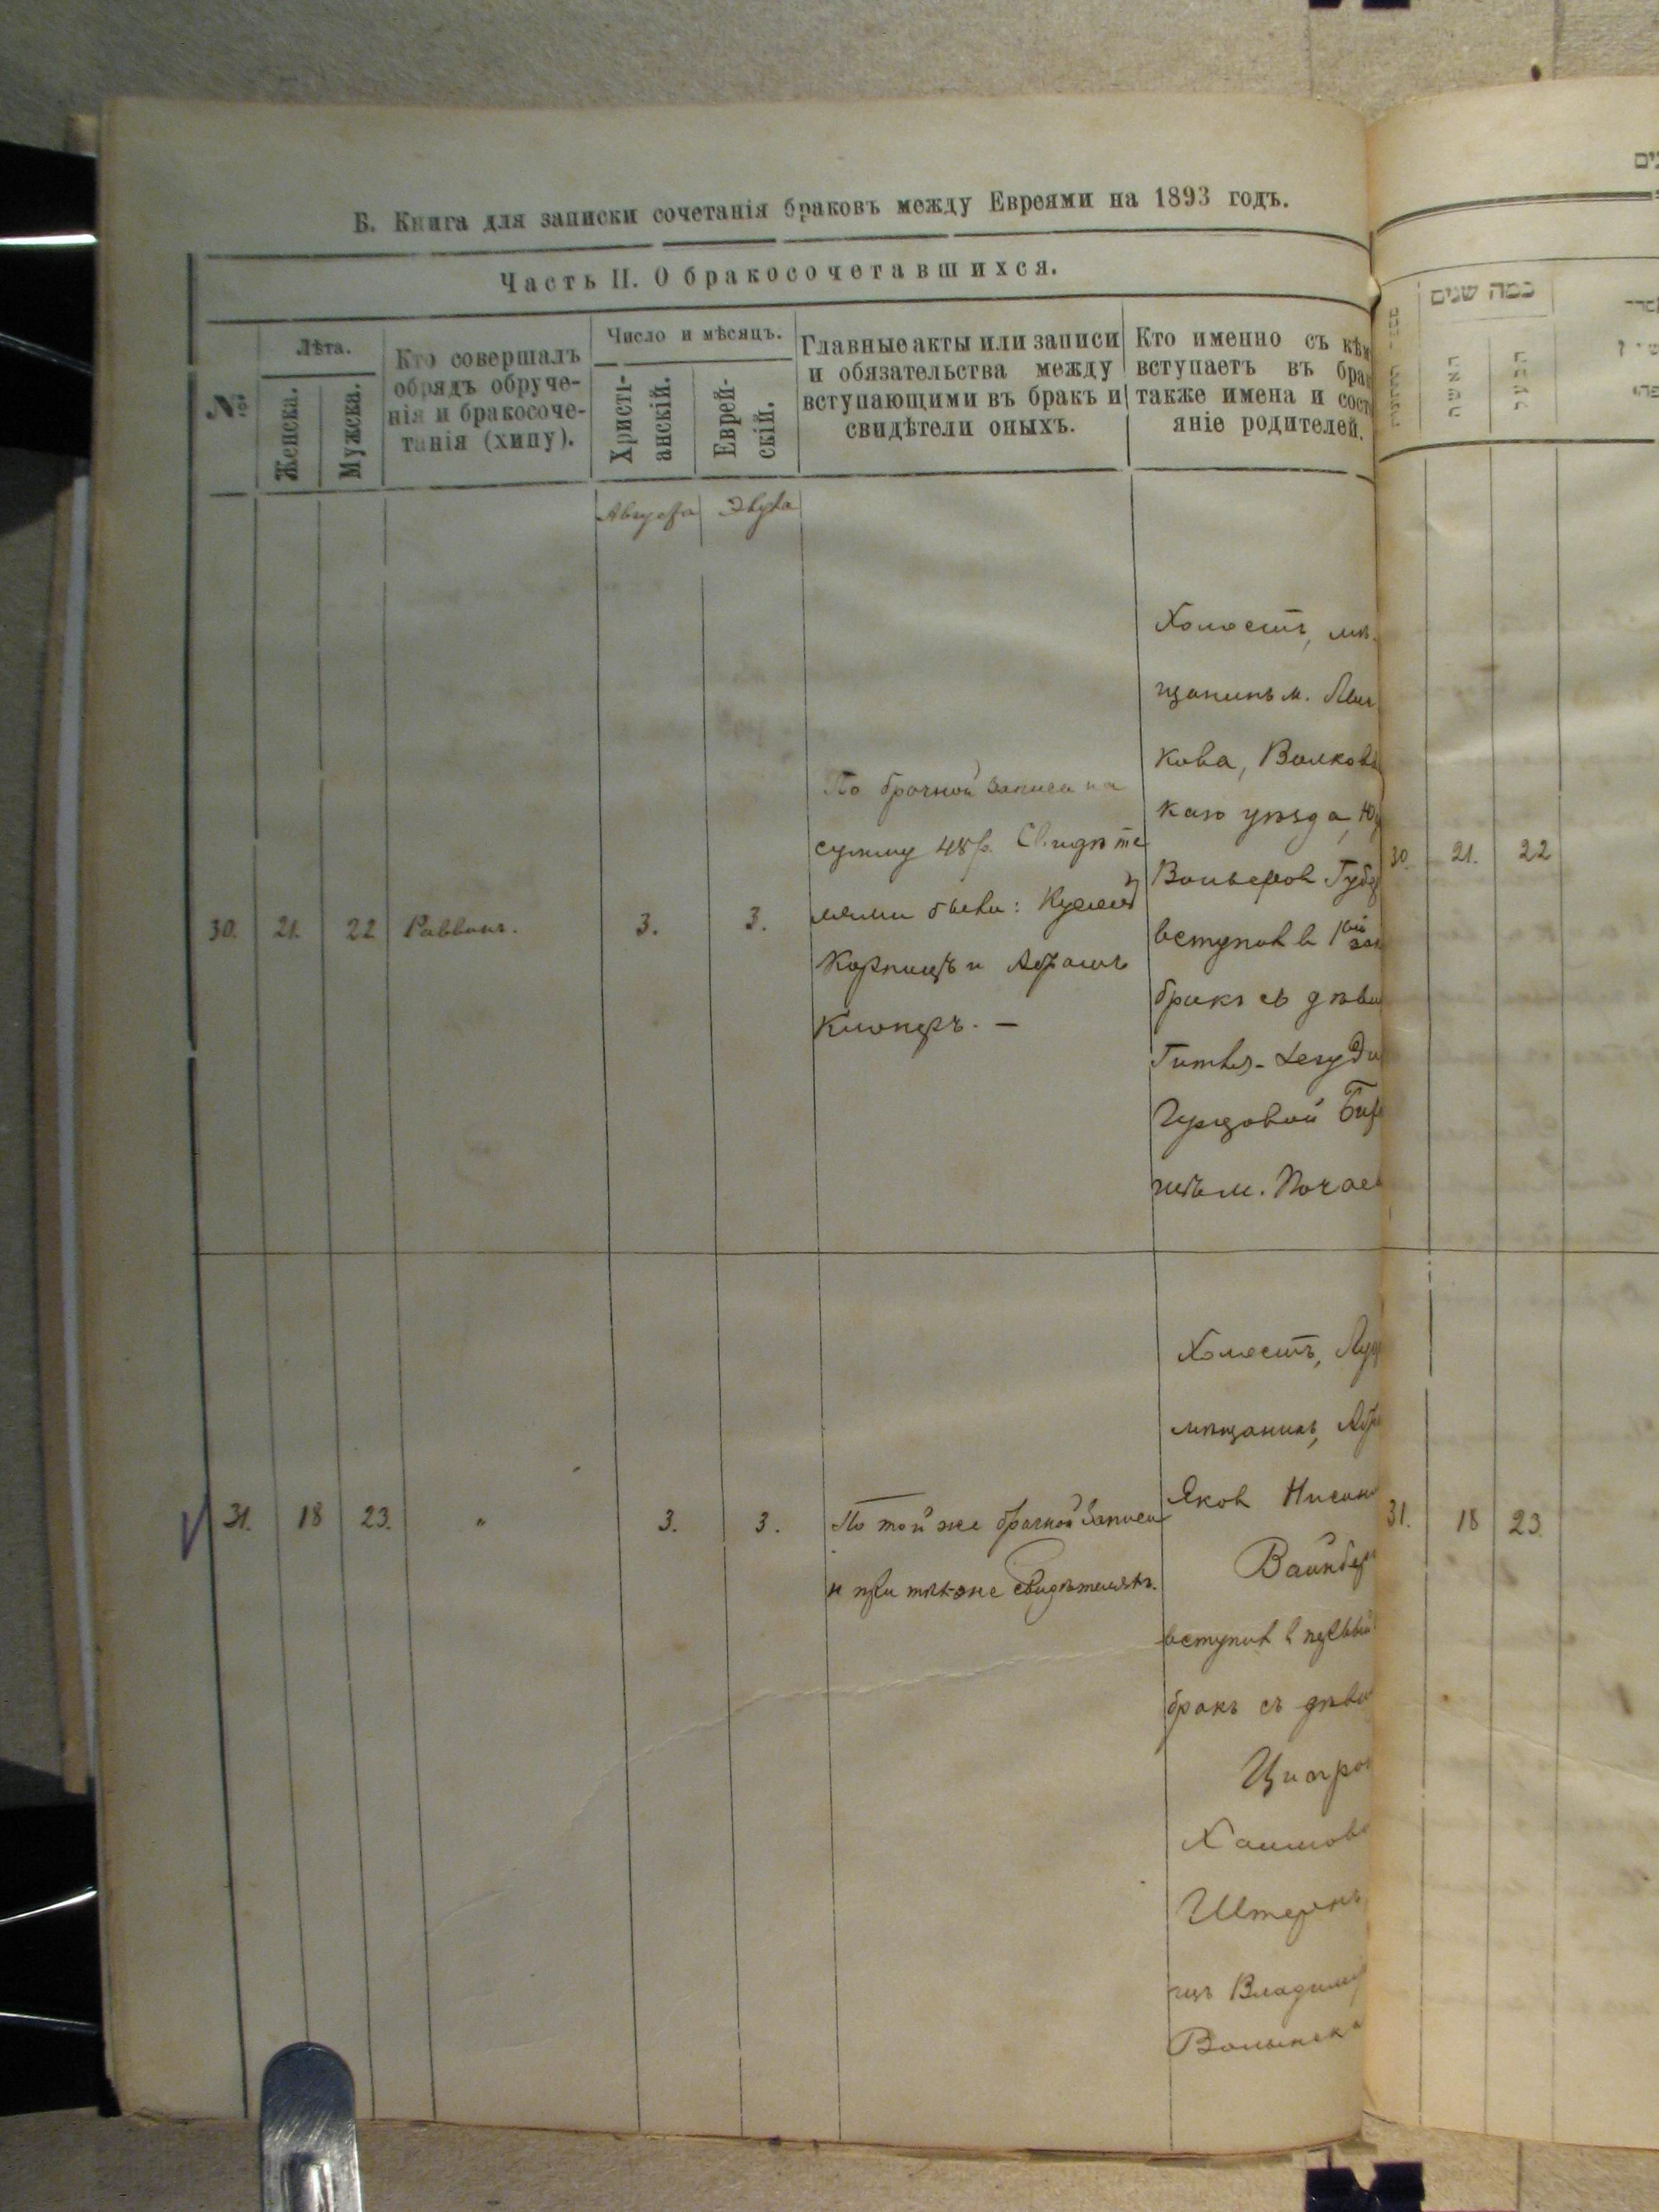 Б. Книга для записки сочетанія браковъ между Евреями на 1893 годъ.
Часть II. О бракосочетавшихся.
№
Лѣта.
Женска.
Мужска.
Кто совершалъ
обрядъ обруче-
нія и бракосоче-
танія (хипу).
Число и мѣсяцъ.
Христі-
анскій.
Еврей-
скій.
Главные акты или записи
и обязательства между
вступающими въ бракъ и
свидѣтели оныхъ.
Кто именно съ кѣм
вступаетъ въ брак
также имена и сост
яніе родителей.
Августа Элула
30. 21. 22 Раввинъ. 3. 3.
По брачной записи на
сумму 48 р. Свидѣте
лями были:
и Абрамъ
Холостъ, мѣ
щанинъ м.
кова, Волков
каго уѣзда,
вступил в 1вый
бракъ съ дѣви
м. Почаев
31. 18 23. " 3. 3.
По той же брачной записи
и при тѣхже свидѣтеляхъ.
Холостъ,
мѣщанинъ,
Яков Нисин
Вайнбер
вступил в первый
бракъ съ дѣви
Ципро
Хаимово
Штернъ
изъ Владимир
Волынска
כמה שנים
האשה
30. 21. 22
31. 18 23